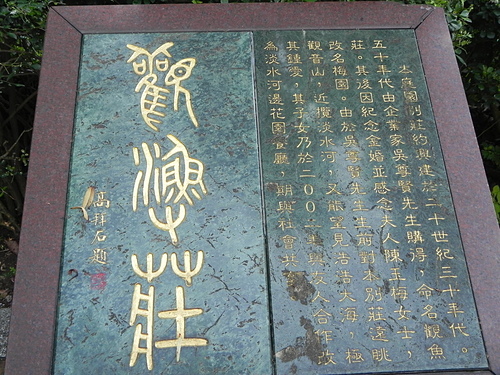 本庭園別莊約興建於二十世紀三十年代。
五十年代由企業家吳尊賢先生購得，命名觀魚
莊。其後因紀念金婚並感念夫人陳玉梅女士，
改名梅園。由於吳尊賢先生生前對本別莊遠眺
觀音山，近攬淡水河，又能望見浩浩大海，極
其鍾愛，其子女乃於二00年與友人合作改
為淡水河邊花園餐廳，期與社會共
觀漁莊
高拜石題